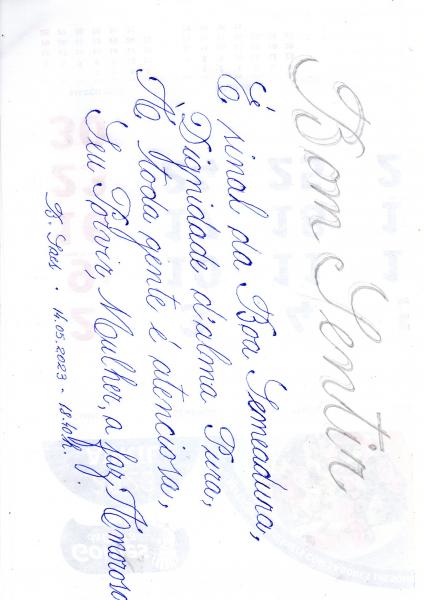 Bom Sentir
É sinal da Boa Semeadura,
Dignidade d'alma Pura,
A Toda gente é atenciosa,
Seu Porvir, Mulher, a faz Amorosa
14.05.2023 -